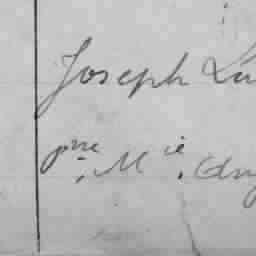 Joseph Lu
pne. Mie. Ang